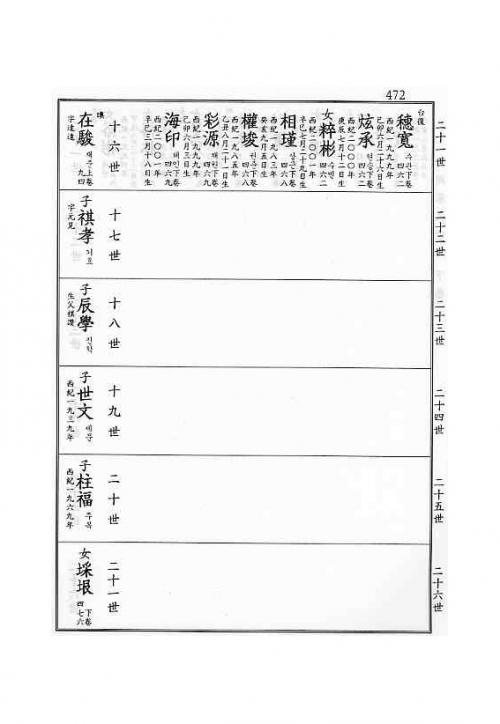 472
二十一世
二十二世
二十三世
二十四世
二十五世
二十六世
台複
穗寬 수관下卷 四六二
西紀一九九九年
己卯六月二十六日生
炫承 현승下卷 四六二
西紀二〇〇〇年
庚辰七月十二日生
女 粹彬 수빈 四六二
西紀二〇〇一年
辛巳七月二十九日生
相瑾 상근下卷 四六八
西紀一九八三年
癸亥九月五日生
權埈 권준下卷 四六八
西紀一九八五年
乙丑八月二十一日生
彩源 채원下卷 四六九
西紀一九九九年
己卯六月三日生
海印 해인下卷 四六九
西紀二〇〇一年
辛巳三月十八日生
十六世
在駿 재준上卷 九四
字達遠
十七世
子 祺孝 기효
字元見
十八世
子 辰學 진학
生父祺漢
十九世
子 世文 세문
西紀一九三九年
二十世
子 柱福 주복
西紀一九六九年
二十一世
女 埰垠 下卷 四七六